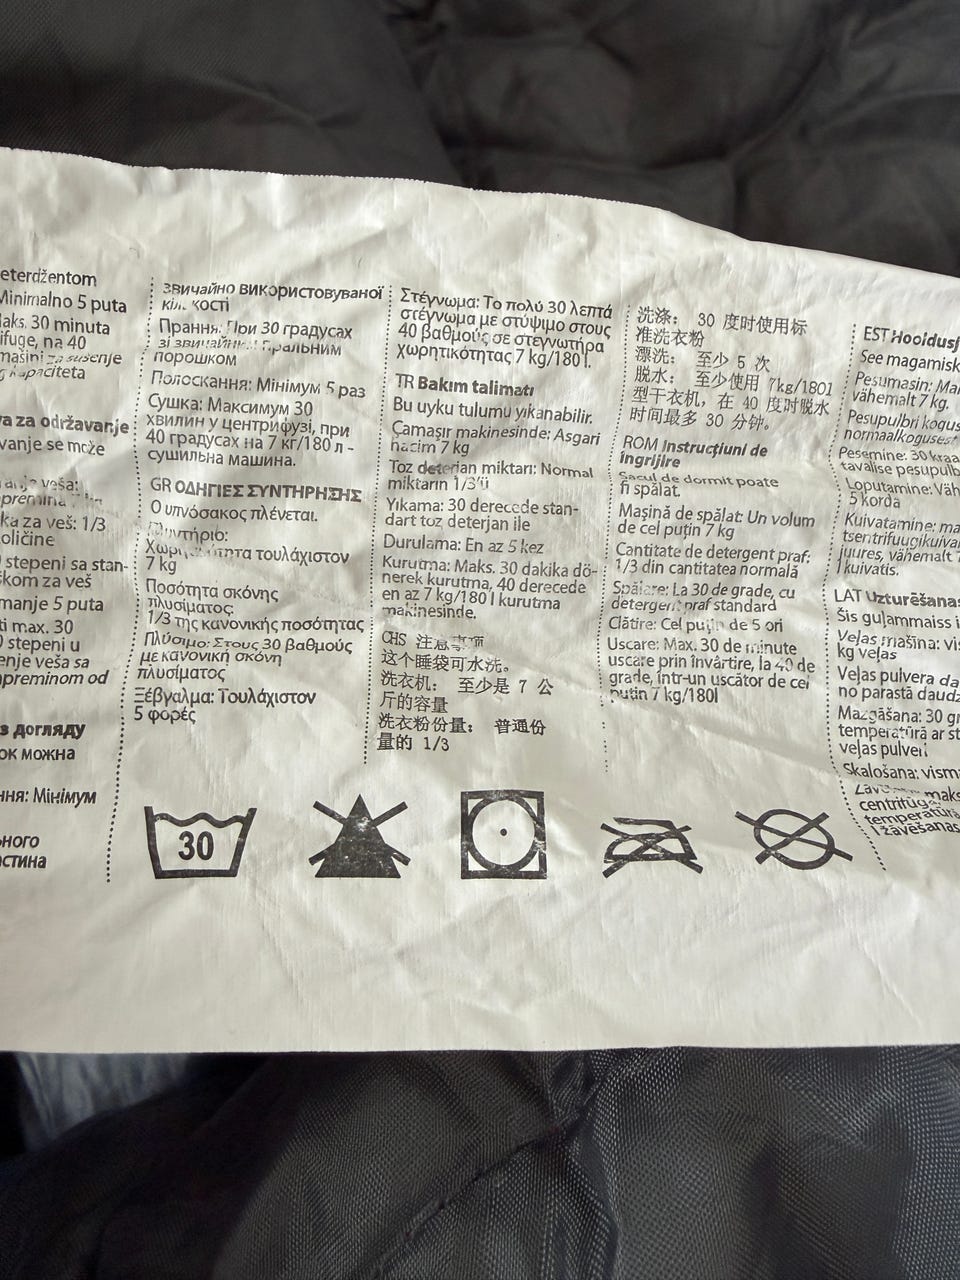 eterdžentom
Minimalno 5 puta
aks. 30 minuta
ifuge, na 40
mašini za sušenje
kapaciteta
va za održavanje
vanje se može
veša:
premina
ka za veš: 1/3
oličine
stepeni sa stan-
škom za veš
manje 5 puta
ti max. 30
0 stepeni u
enje veša sa
apreminom od
з догляду
ок можна
ння: Мінімум
ного
астина
звичайно використовуваної
кількості
Прання: При 30 градусах
зі звичайним пральним
порошком
Полоскання: Мінімум 5 раз
Сушка: Максимум 30
хвилин у центрифузі, при
40 градусах на 7 кг/180 л -
сушильна машина.
GR ΟΔΗΓΙΕΣ ΣΥΝΤΗΡΗΣΗΣ
Ο υπνόσακος πλένεται.
Πλυντήριο:
Χωρητικότητα τουλάχιστον
7 kg
Ποσότητα σκόνης
πλυσίματος:
1/3 της κανονικής ποσότητας
Πλύσιμο: Στους 30 βαθμούς
με κανονική σκόνη
πλυσίματος
Ξέβγαλμα: Τουλάχιστον
5 φορές
Στέγνωμα: Το πολύ 30 λεπτά
στέγνωμα με στύψιμο στους
40 βαθμούς σε στεγνωτήρα
χωρητικότητας 7 kg/180 l.
TR Bakım talimatı
Bu uyku tulumu yıkanabilir.
Çamaşır makinesinde: Asgari
hacim 7 kg
Toz deterjan miktarı: Normal
miktarın 1/3'ü
Yıkama: 30 derecede stan-
dart toz deterjan ile
Durulama: En az 5 kez
Kurutma: Maks. 30 dakika dö-
nerek kurutma, 40 derecede
en az 7 kg/180 l kurutma
makinesinde.
CHS 注意事项
这个睡袋可水洗。
洗衣机： 至少是 7 公
斤的容量
洗衣粉份量： 普通份
量的 1/3
洗涤： 30 度时使用标
准洗衣粉
漂洗： 至少 5 次
脱水： 至少使用 7kg/180l
型干衣机，在 40 度时脱水
时间最多 30 分钟。
ROM Instrucţiuni de
îngrijire
Sacul de dormit poate
fi spălat.
Maşină de spălat: Un volum
de cel puţin 7 kg
Cantitate de detergent praf:
1/3 din cantitatea normală
Spălare: La 30 de grade, cu
detergent praf standard
Clătire: Cel puţin de 5 ori
Uscare: Max. 30 de minute
uscare prin învârtire, la 40 de
grade, într-un uscător de cel
puţin 7 kg/180l
EST Hooidusj
See magamisk
Pesumasin: Ma
vähemalt 7 kg.
Pesupulbri kogus
normaalkogusest
Pesemine: 30 kraa
tavalise pesupulb
Loputamine: Väh
5 korda
Kuivatamine: ma
tsentrifuugikuiva
juures, vähemalt 7
l kuivatis.
LAT Uzturēšanas
Šis guļammaiss i
Veļas mašīna: vis
kg veļas
Veļas pulvera da
no parastā daudz
Mazgāšana: 30 gr
temperatūrā ar st
veļas pulveri
Skalošana: vism
maks
centrifūgā
temperatūrā
l žāvēšanas
30